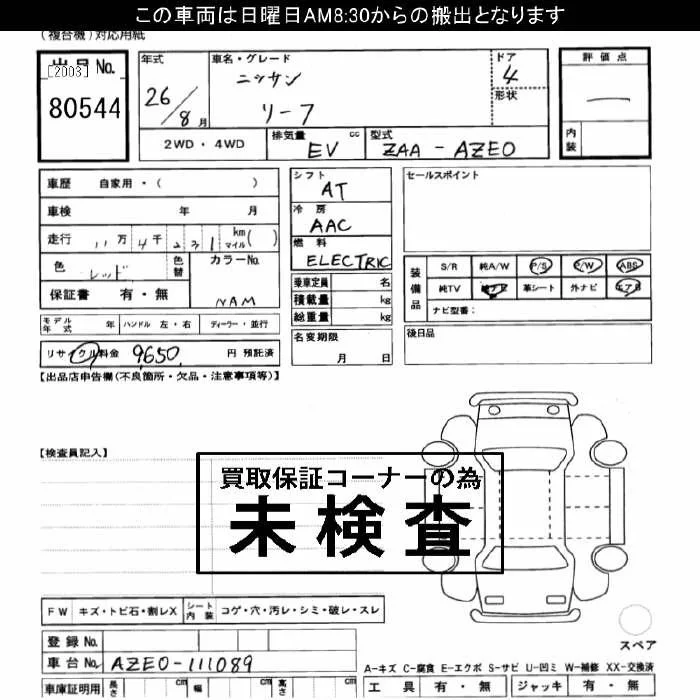 この車両は日曜日AM8:30からの搬出となります
(複合機)対応用紙
出品No. [2003]
80544
年式 26/8月
車名・グレード
ニッサン
リーフ
ドア 4
形状
評価点
—
内装
2WD・4WD
排気量 EV cc
型式 ZAA-AZE0
車歴 自家用・( )
車検 年 月
走行 11万4千231 km マイル( )
色 レッド 色替 カラーNo. NAM
保証書 有・無
シフト AT
冷房 AAC
燃料 ELECTRIC
乗車定員 名
積載量 kg
総重量 kg
セールスポイント
装備品
S/R 純A/W P/S P/W ABS
純TV 純ナビ 革シート 外ナビ エアB
ナビ型番:
モデル年式 年 ハンドル 左・右 ディーラー・並行
名変期限 月 日
後日品
リサイクル料金 9650 円 預託済
【出品店申告欄(不良箇所・欠品・注意事項等)】
【検査員記入】
買取保証コーナーの為
未検査
FW キズ・トビ石・割レX シート内装 コゲ・穴・汚レ・シミ・破レ・スレ
スペア
登録No.
車台No. AZE0-111089
A-キズ C-腐食 E-エクボ S-サビ U-凹ミ W-補修 XX-交換済
車庫証明用 長さ cm 幅 cm 高さ cm
工具 有・無 ジャッキ 有・無